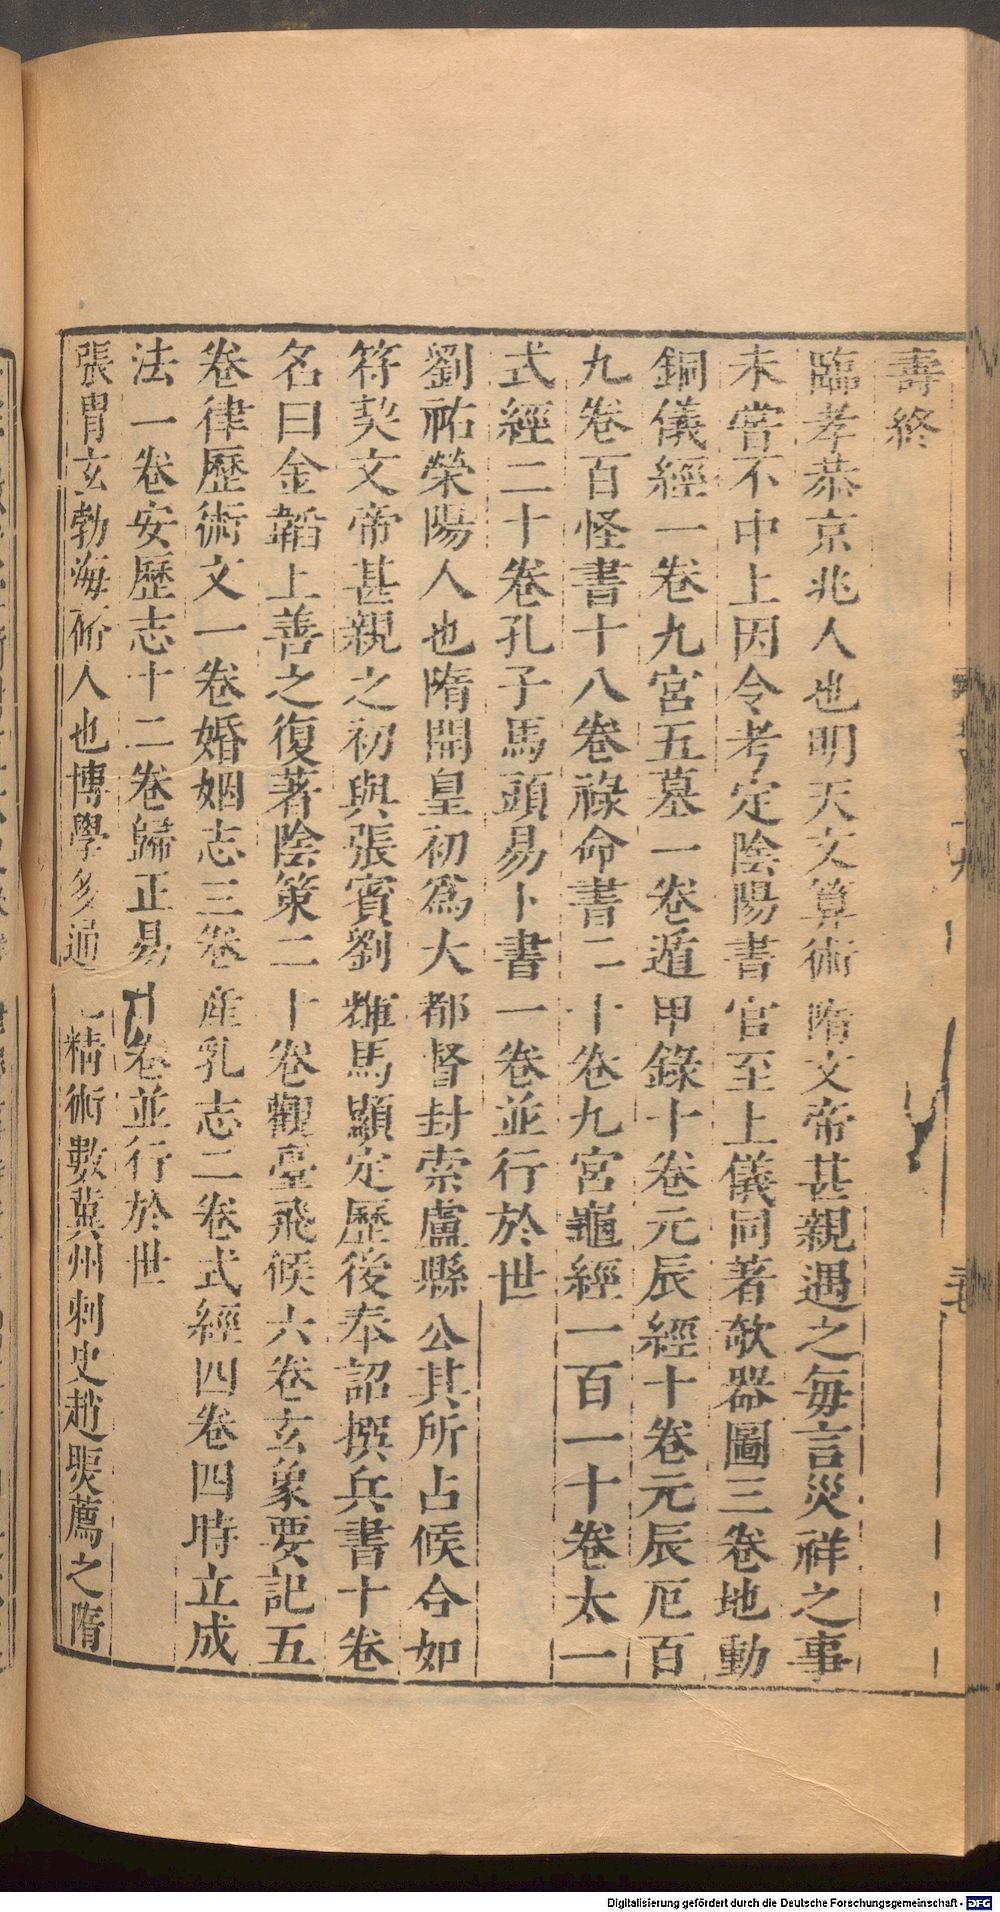 壽終
臨孝恭京兆人也明天文算術隋文帝甚親遇之每言災祥之事
未嘗不中上因令考定陰陽書官至上儀同著欹器圖三卷地動
銅儀經一卷九宮五墓一卷遁甲錄十卷元辰經十卷元辰厄百
九卷百怪書十八卷祿命書二十卷九宮龜經一百一十卷太一
式經二十卷孔子馬頭易卜書一卷並行於世
劉祐榮陽人也隋開皇初爲大都督封索盧縣公其所占候合如
符契文帝甚親之初與張賓劉輝馬顯定歷後奉詔撰兵書十卷
名曰金韜上善之復著陰策二十卷觀臺飛候六卷玄象要記五
卷律歷術文一卷婚姻志三卷產乳志二卷式經四卷四時立成
法一卷安歷志十二卷歸正易十卷並行於世
張胄玄勃海蓨人也博學多通精術數冀州刺史趙煚薦之隋
Digitalisierung gefördert durch die Deutsche Forschungsgemeinschaft - DFG